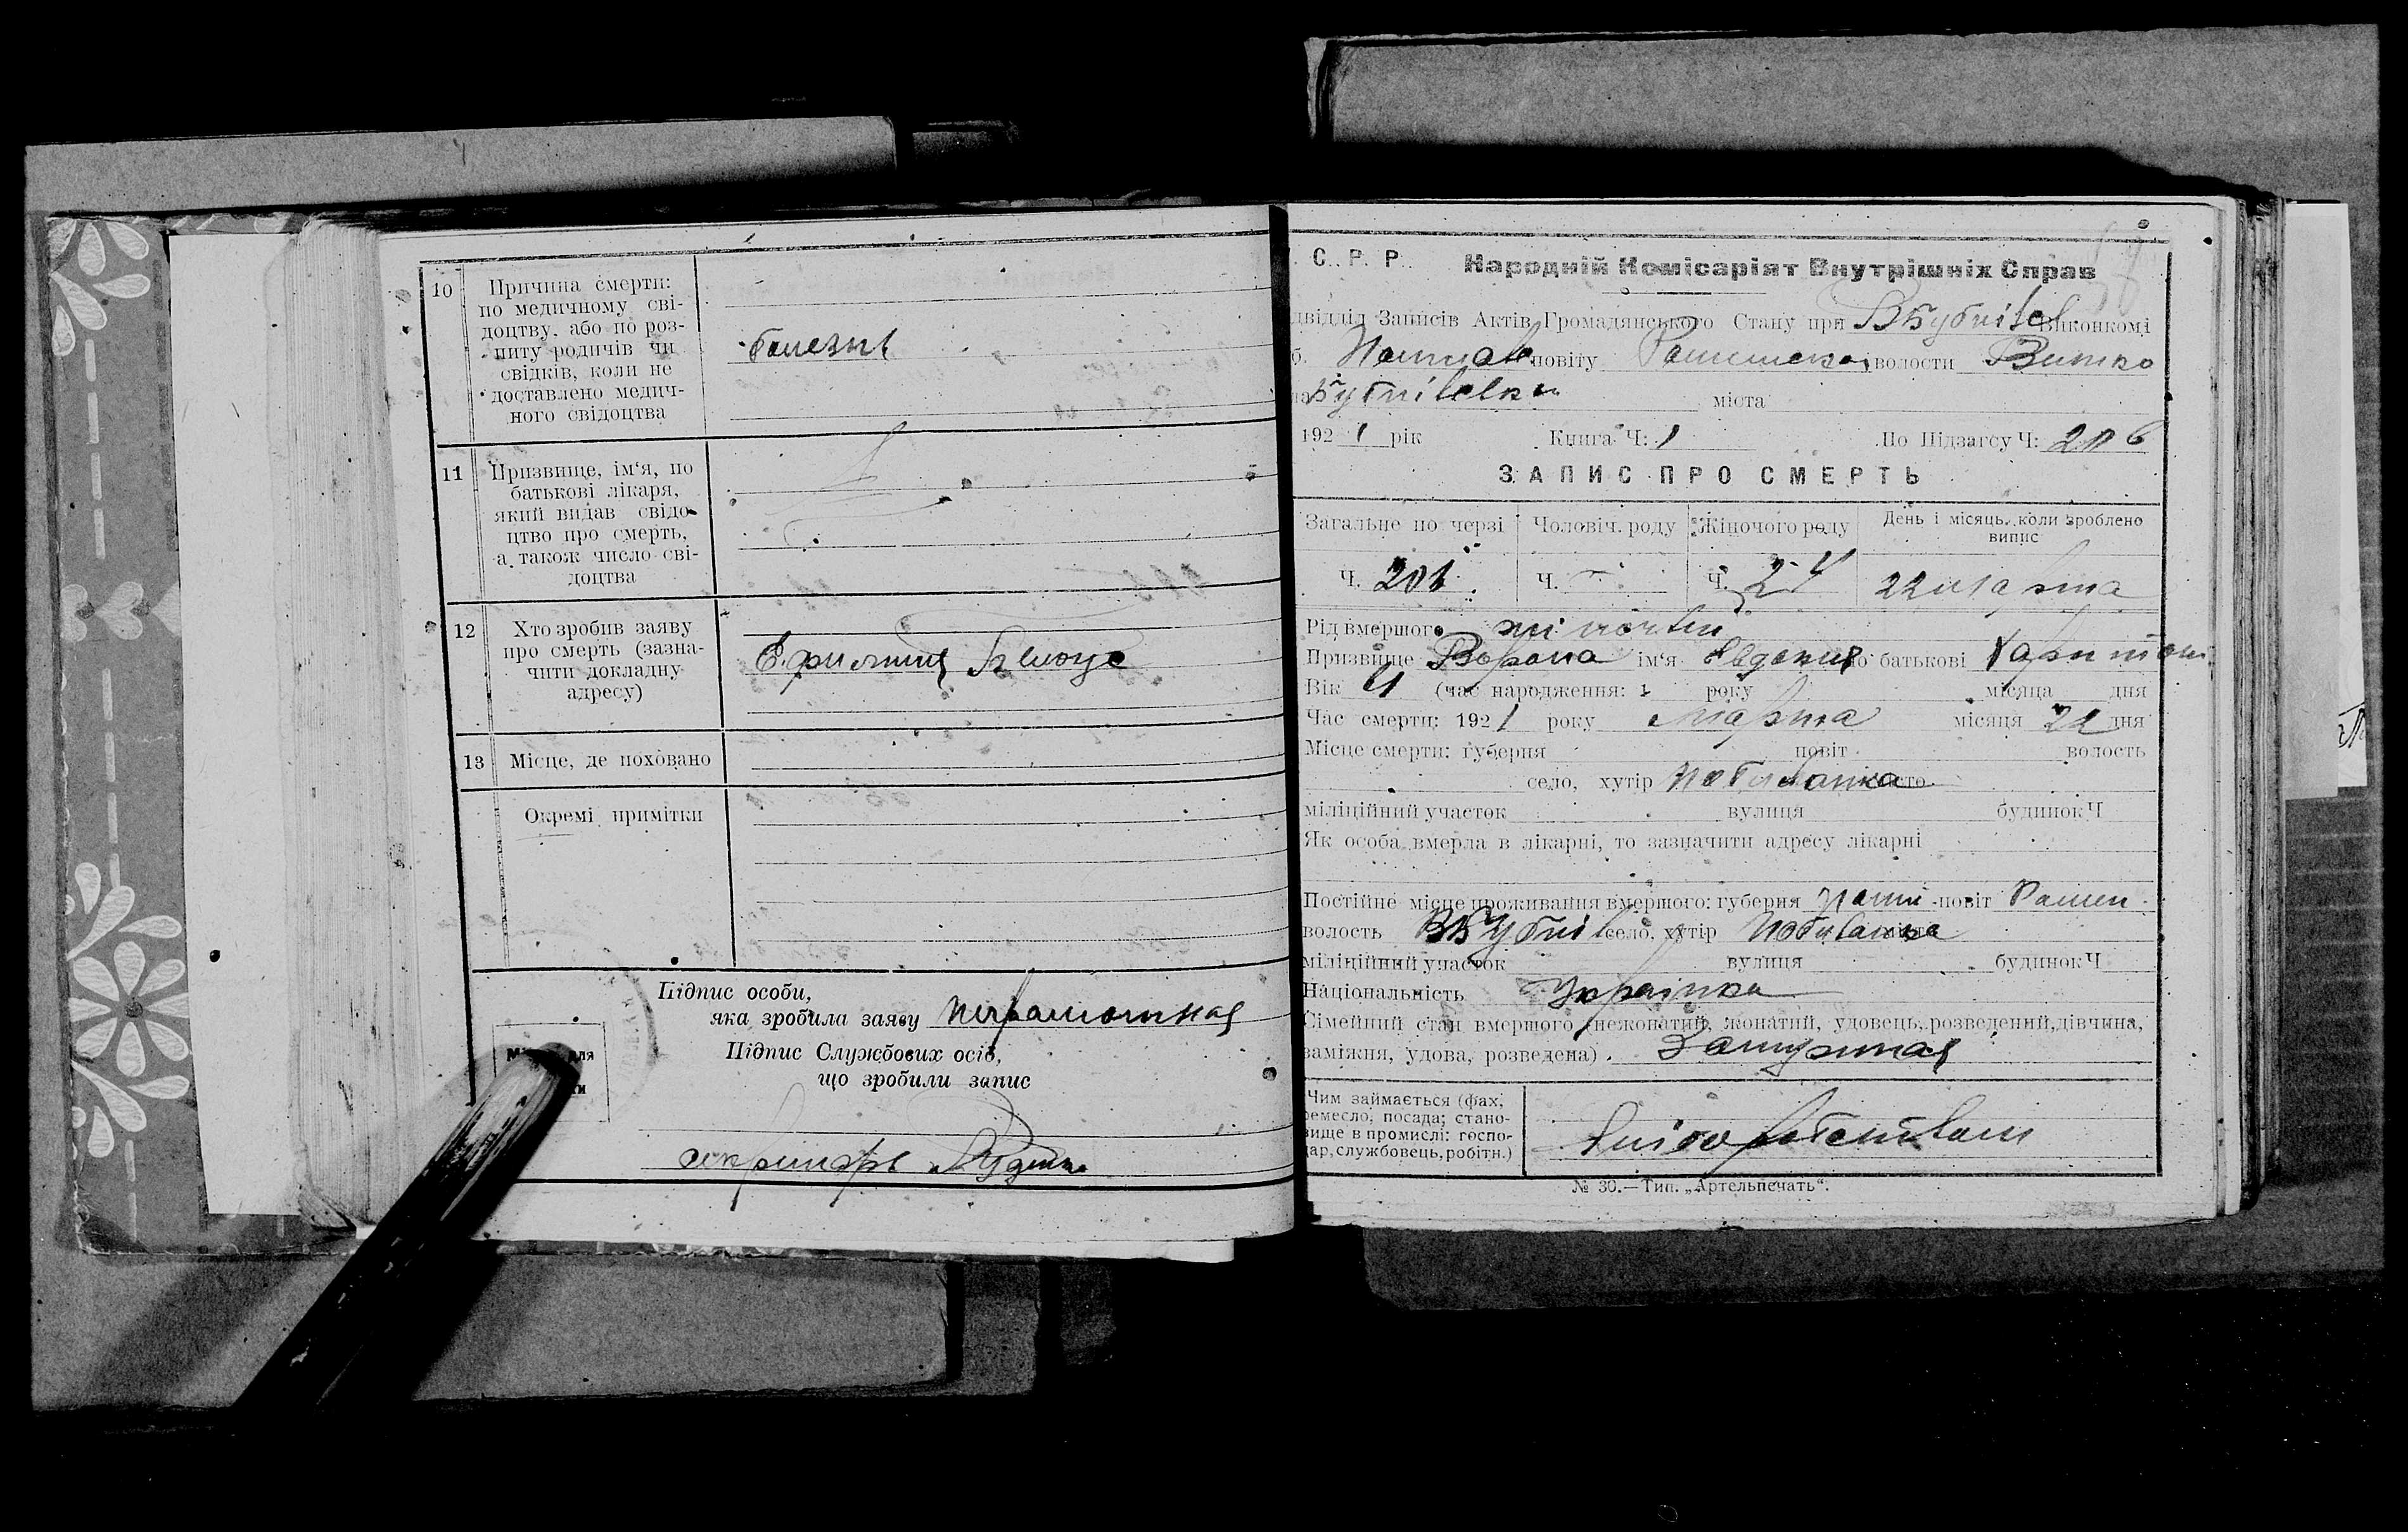 10 Причина смерти:
по медичному сві-
доцтву, або по роз-
питу родичів чи
свідків, коли не
доставлено медич-
ного свідоцтва
болезнь
11 Призвище, ім'я, по
батькові лікаря,
який видав свідо-
цтво про смерть,
а також число сві-
доцтва
12 Хто зробив заяву
про смерть (зазна-
чити докладну
адресу)
13 Місце, де поховано
Окремі примітки
Підпис особи,
яка зробила заяву неграмотная
Підпис Службових осіб,
що зробили запис
секритарь
С. Р. Р. Народній Комісаріят Внутрішніх Справ
двідділ Записів Актів Громадянського Стану при ВБубнівс Виконкомі
б. Полтав повіту волости
міста
192 1 рік Книга Ч: 1 По Підзагсу Ч: 206
ЗАПИС ПРО СМЕРТЬ
Загальне по черзі Чоловіч. роду Жіночого роду День і місяць, коли зроблено
випис
Ч. 201 Ч. Ч. 22 марта
Рід вмершого жіночий
Призвище Ворона ім'я Евдокия по батькові Харитон
Вік (час народження: 1 року місяца дня
Час смерти: 192 1 року марта місяця 22 дня
Місце смерти: губерня повіт волость
село, хутір місто
міліційний участок вулиця будинок Ч
Як особа вмерла в лікарні, то зазначити адресу лікарні
Постійне місце проживання вмершого: губерня Полт повіт Ромен
волость ВБубнів село, хутір місто
міліційний участок вулиця будинок Ч
Національність Українка
Сімейний стан вмершого (нежонатий, жонатий, удовець, розведений, дівчина,
заміжня, удова, розведена) Замужная
Чим займається (фах,
ремесло, посада; стано-
вище в промислі: госпо-
дар, службовець, робітн.)
хлібороб
№ 30.—Тип. „Артельпечать“.